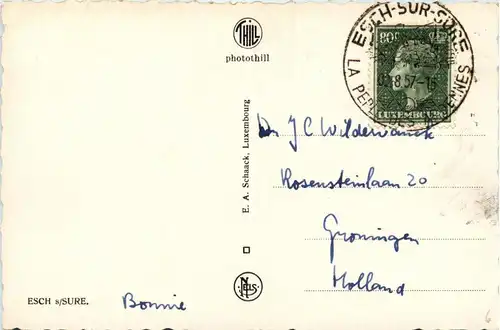 THILL
photothill
E. A. Schaack, Luxembourg
NELS
ESCH s/SURE.
Bonnie
ESCH-SUR-SURE
LA PERLE DES ARDENNES
8.57-15
80c
LUXEMBOURG
Dr JC Wildervanck
Rosensteinlaan 20
Groningen
Holland
6